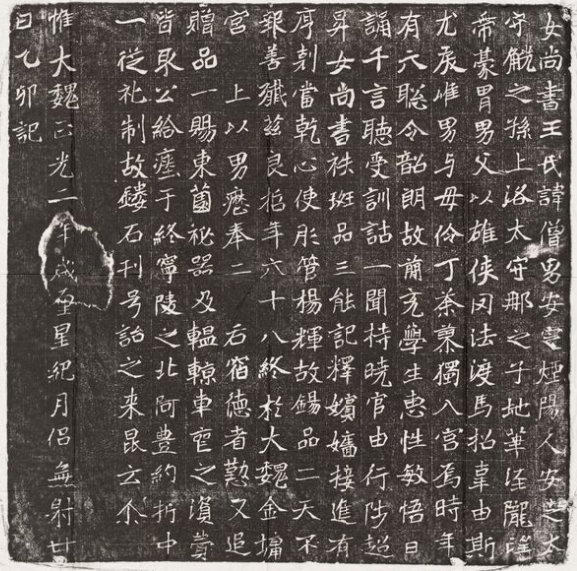 女尚書王氏諱僧男安定煙陽人安定太
守䚈之孫上洛太守那之子地華涇隴望
帝豪胄男父以雄俠罔法渡馬招辜由斯
尤戾唯男与母伶丁荼蓼獨入宮焉時年
有六聡令韶朗故簡充學生惠性敏悟日
誦千言聽受訓詁一聞持曉官由行陟超
昇女尚書秩班品三能記釋嬪嬙接進有
序剋當乾心使彤管楊輝故錫品二天不
報善殲茲良狛年六十八終於大魏金墉
宮 上以男歷奉二 后宿德者懃又追
贈品一賜東薗祕器及輼輬車官之濱費
皆取公給瘞于終寧陵之北阿豊約折中
一從礼制故鏤石刊号詒之来昆云尒
惟大魏正光二年歲至星紀月侣無射廿
日乙卯記